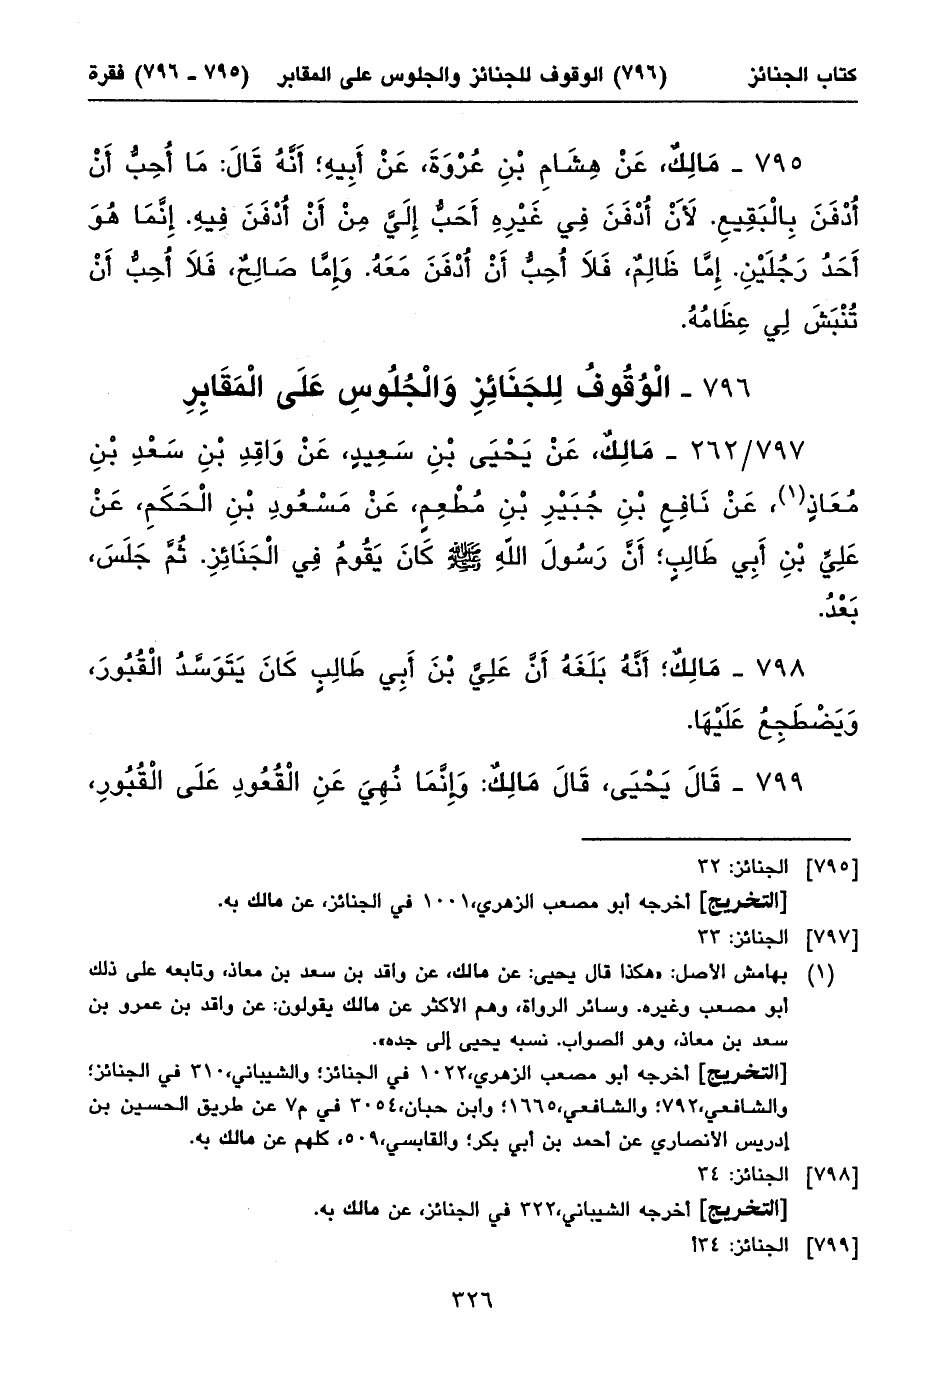 كتاب الجنائز (٧٩٦) الوقوف للجنائز والجلوس على المقابر (٧٩٥ ـ ٧٩٦) فقرة
٧٩٥ ـ مَالِكٌ، عَنْ هِشَامِ بْنِ عُرْوَةَ، عَنْ أَبِيهِ؛ أَنَّهُ قَالَ: مَا أُحِبُّ أَنْ
أُدْفَنَ بِالْبَقِيعِ. لَأَنْ أُدْفَنَ فِي غَيْرِهِ أَحَبُّ إِلَيَّ مِنْ أَنْ أُدْفَنَ فِيهِ. إِنَّمَا هُوَ
أَحَدُ رَجُلَيْنِ. إِمَّا ظَالِمٌ، فَلَا أُحِبُّ أَنْ أُدْفَنَ مَعَهُ. وَإِمَّا صَالِحٌ، فَلَا أُحِبُّ أَنْ
تُنْبَشَ لِي عِظَامُهُ.
٧٩٦ ـ الْوُقُوفُ لِلجَنَائِزِ وَالْجُلُوسِ عَلَى الْمَقَابِرِ
٢٦٢/٧٩٧ ـ مَالِكٌ، عَنْ يَحْيَى بْنِ سَعِيدٍ، عَنْ وَاقِدِ بْنِ سَعْدِ بْنِ
مُعَاذٍ(١)، عَنْ نَافِعِ بْنِ جُبَيْرِ بْنِ مُطْعِمٍ، عَنْ مَسْعُودِ بْنِ الْحَكَمِ، عَنْ
عَلِيِّ بْنِ أَبِي طَالِبٍ؛ أَنَّ رَسُولَ اللّهِ ﷺ كَانَ يَقُومُ فِي الْجَنَائِزِ. ثُمَّ جَلَسَ،
بَعْدُ.
٧٩٨ ـ مَالِكٌ؛ أَنَّهُ بَلَغَهُ أَنَّ عَلِيَّ بْنَ أَبِي طَالِبٍ كَانَ يَتَوَسَّدُ الْقُبُورَ،
وَيَضْطَجِعُ عَلَيْهَا.
٧٩٩ ـ قَالَ يَحْيَى، قَالَ مَالِكٌ: وَإِنَّمَا نُهِيَ عَنِ الْقُعُودِ عَلَى الْقُبُورِ،
[٧٩٥] الجنائز: ٣٢
[التخريج] أخرجه أبو مصعب الزهري،١٠٠١ في الجنائز، عن مالك به.
[٧٩٧] الجنائز: ٣٣
(١) بهامش الأصل: «هكذا قال يحيى: عن مالك، عن واقد بن سعد بن معاذ، وتابعه على ذلك
أبو مصعب وغيره. وسائر الرواة، وهم الأكثر عن مالك يقولون: عن واقد بن عمرو بن
سعد بن معاذ، وهو الصواب. نسبه يحيى إلى جده».
[التخريج] أخرجه أبو مصعب الزهري،١٠٢٢ في الجنائز؛ والشيباني،٣١٠ في الجنائز؛
والشافعي،٧٩٢؛ والشافعي،١٦٦٥؛ وابن حبان،٣٠٥٤ في م٧ عن طريق الحسين بن
إدريس الأنصاري عن أحمد بن أبي بكر؛ والقابسي،٥٠٩، كلهم عن مالك به.
[٧٩٨] الجنائز: ٣٤
[التخريج] أخرجه الشيباني،٣٢٢ في الجنائز، عن مالك به.
[٧٩٩] الجنائز: ٣٤أ
٣٢٦